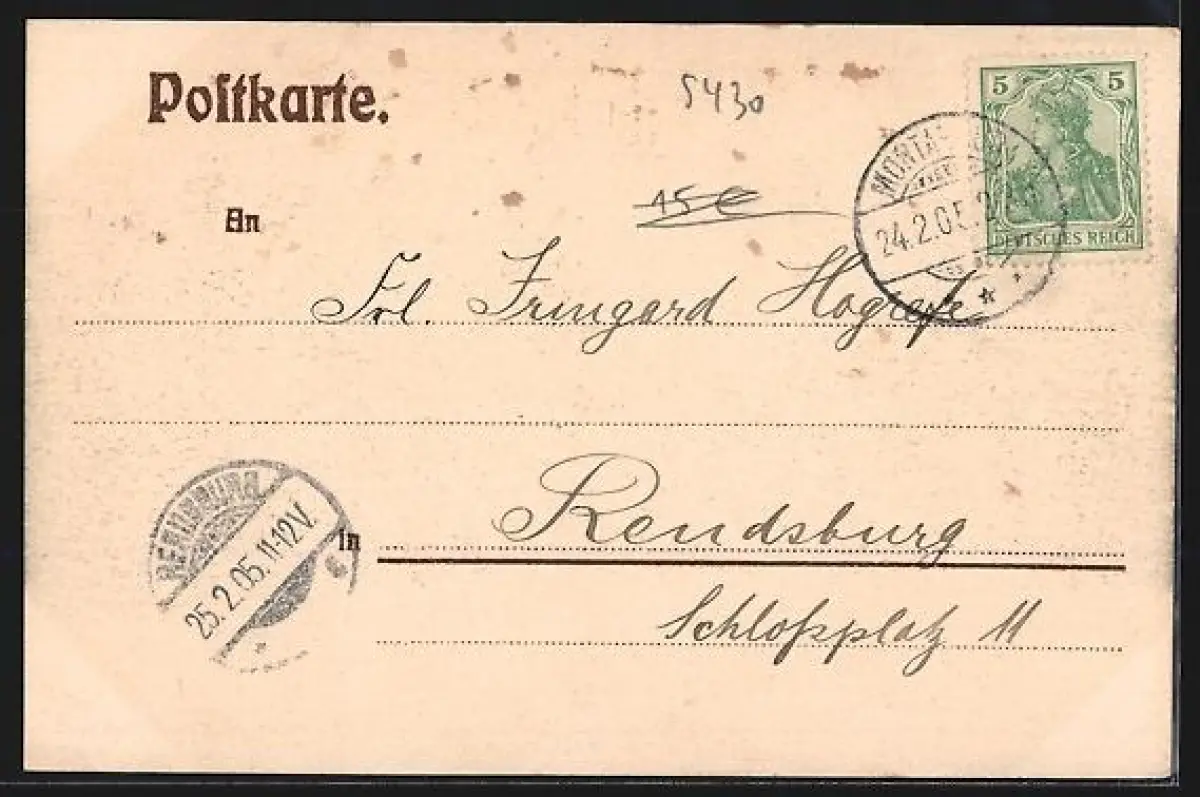 Poſtkarte.
5430
5 5
24.2.05.
DEUTSCHES REICH
An
15€
Frl. Irmgard Hogrefe
RENDSBURG
25.2.05.11-12V.
in Rendsburg
Schloßplatz 11